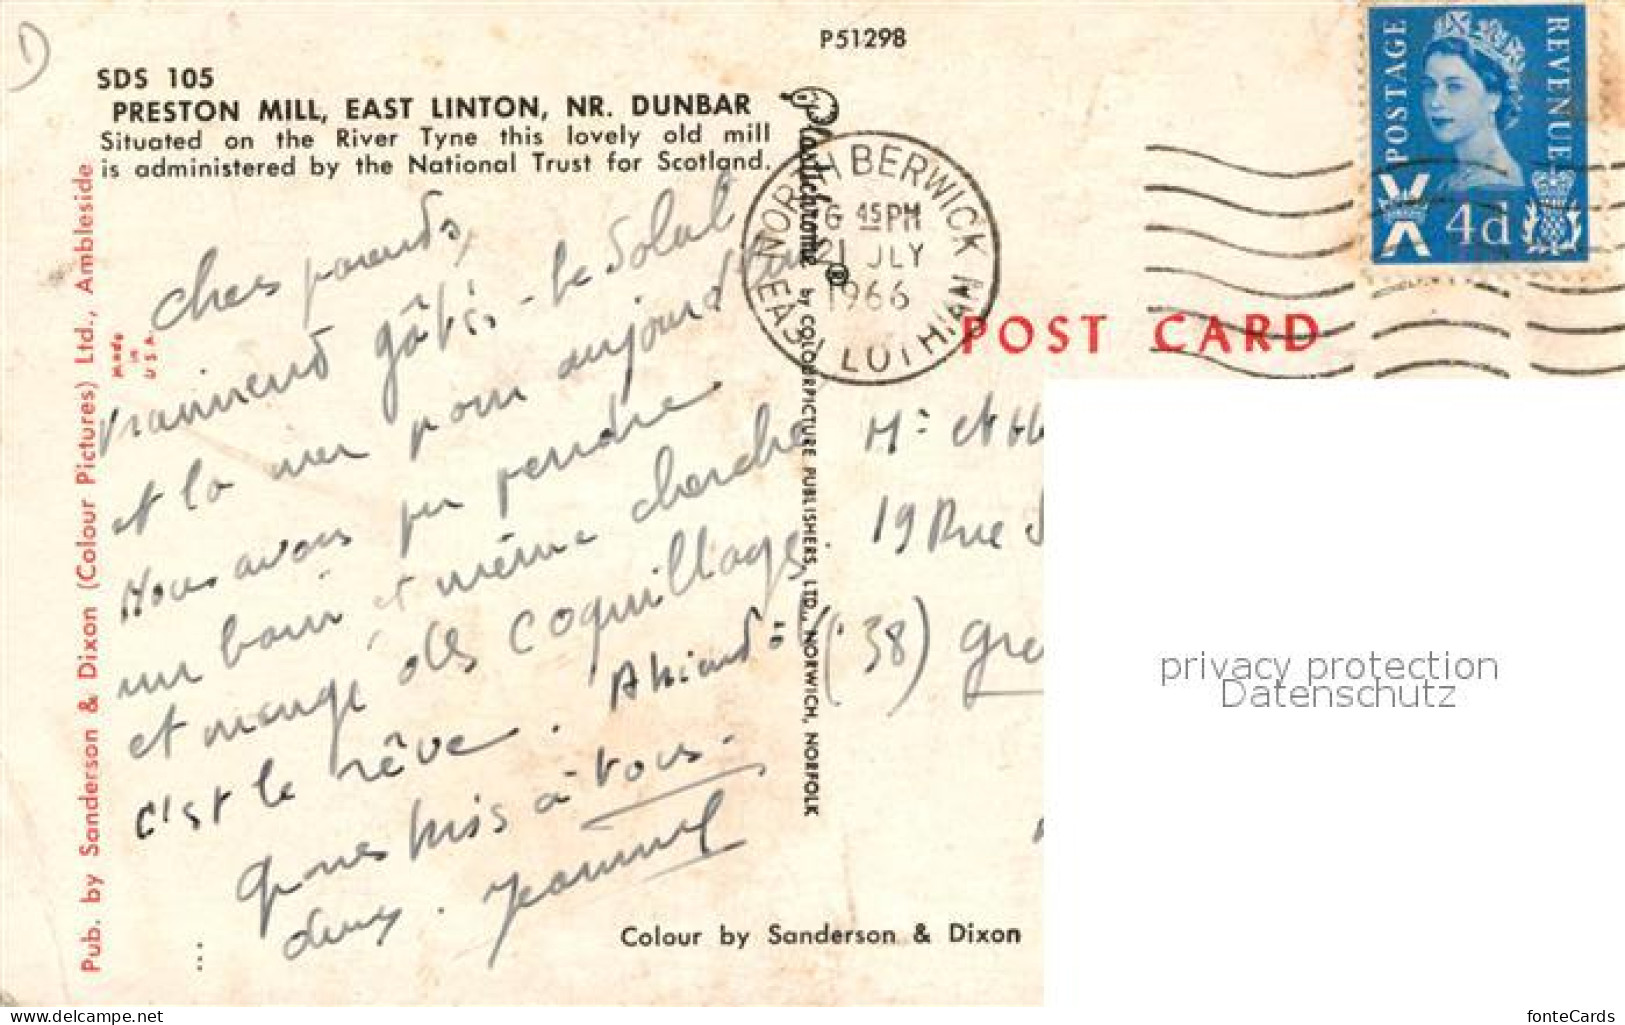 P51298
SDS 105
PRESTON MILL, EAST LINTON, NR. DUNBAR
Situated on the River Tyne this lovely old mill
is administered by the National Trust for Scotland.
Pub. by Sanderson & Dixon (Colour Pictures) Ltd., Ambleside
Made
in
U.S.A.
Chers parents,
vraiment gâtés - le Soleil
et la mer pour aujourd'hui
Nous avons pu prendre
un bain et même cherché
et mangé des coquillages
c'est le rêve.
à vous.
Plastichrome ® by COLOURPICTURE PUBLISHERS, LTD., NORWICH, NORFOLK
NORTH BERWICK
6 45 PM
21 JLY
1966
EAST LOTHIAN
POSTAGE
REVENUE
4d
POST CARD
19 Rue
(38) Gre
privacy protection
Datenschutz
Colour by Sanderson & Dixon
www.delcampe.net
fonteCards